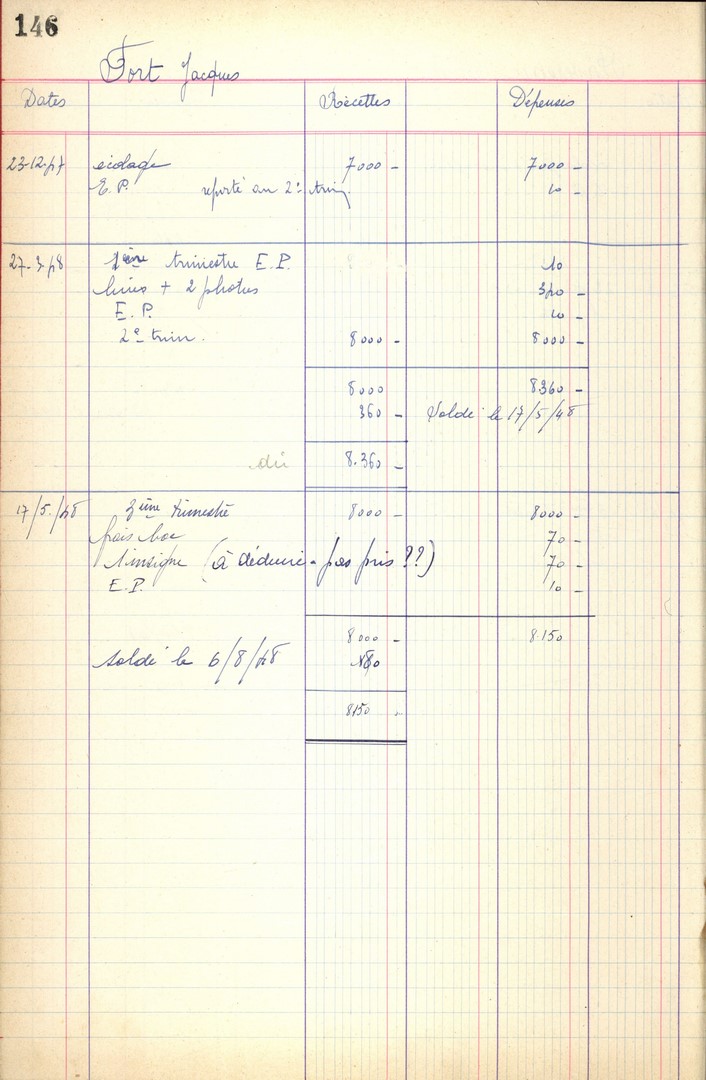 146
Fort Jacques
Dates Récettes Dépenses
23-12-47 écolage 7000 - 7000 -
E.P. reporté au 2e trim. 10 -
27-3-48 1ère trimestre E.P. 10
livres + 2 photos 340 -
E.P. 10 -
2e trim. 8000 - 8000 -
8000 8360 -
360 - Soldé le 17/5/48
dû 8.360 -
17/5/48 3ème trimestre 8000 - 8000 -
frais bac 70 -
1 insigne (à déduire - pas pris ??) 70 -
E.P. 10 -
8000 - 8.150
Soldé le 6/8/48
8150 -